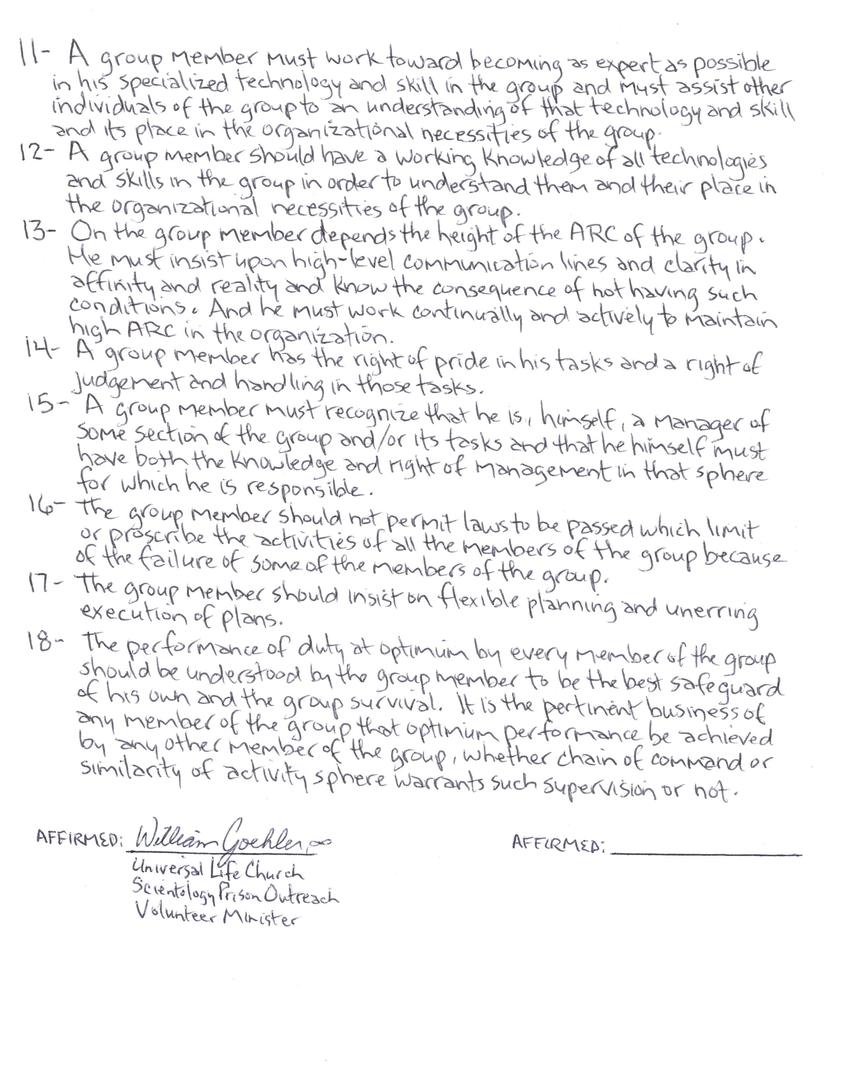 11- A group member must work toward becoming as expert as possible
in his specialized technology and skill in the group and must assist other
individuals of the group to an understanding of that technology and skill
and its place in the organizational necessities of the group.
12- A group member should have a working knowledge of all technologies
and skills in the group in order to understand them and their place in
the organizational necessities of the group.
13- On the group member depends the height of the ARC of the group.
He must insist upon high-level communication lines and clarity in
affinity and reality and know the consequence of not having such
conditions. And he must work continually and actively to maintain
high ARC in the organization.
14- A group member has the right of pride in his tasks and a right of
judgement and handling in those tasks.
15- A group member must recognize that he is, himself, a manager of
some section of the group and/or its tasks and that he himself must
have both the knowledge and right of management in that sphere
for which he is responsible.
16- The group member should not permit laws to be passed which limit
or proscribe the activities of all the members of the group because
of the failure of some of the members of the group.
17- The group member should insist on flexible planning and unerring
execution of plans.
18- The performance of duty at optimum by every member of the group
should be understood by the group member to be the best safeguard
of his own and the group survival. It is the pertinent business of
any member of the group that optimum performance be achieved
by any other member of the group, whether chain of command or
similarity of activity sphere warrants such supervision or not.
AFFIRMED: William Goehler
AFFIRMED:
Universal Life Church
Scientology Prison Outreach
Volunteer Minister